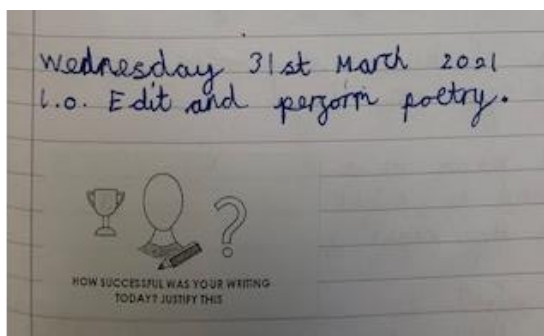 Wednesday 31st March 2021
L.O. Edit and perform poetry.
HOW SUCCESSFUL WAS YOUR WRITING
TODAY? JUSTIFY THIS